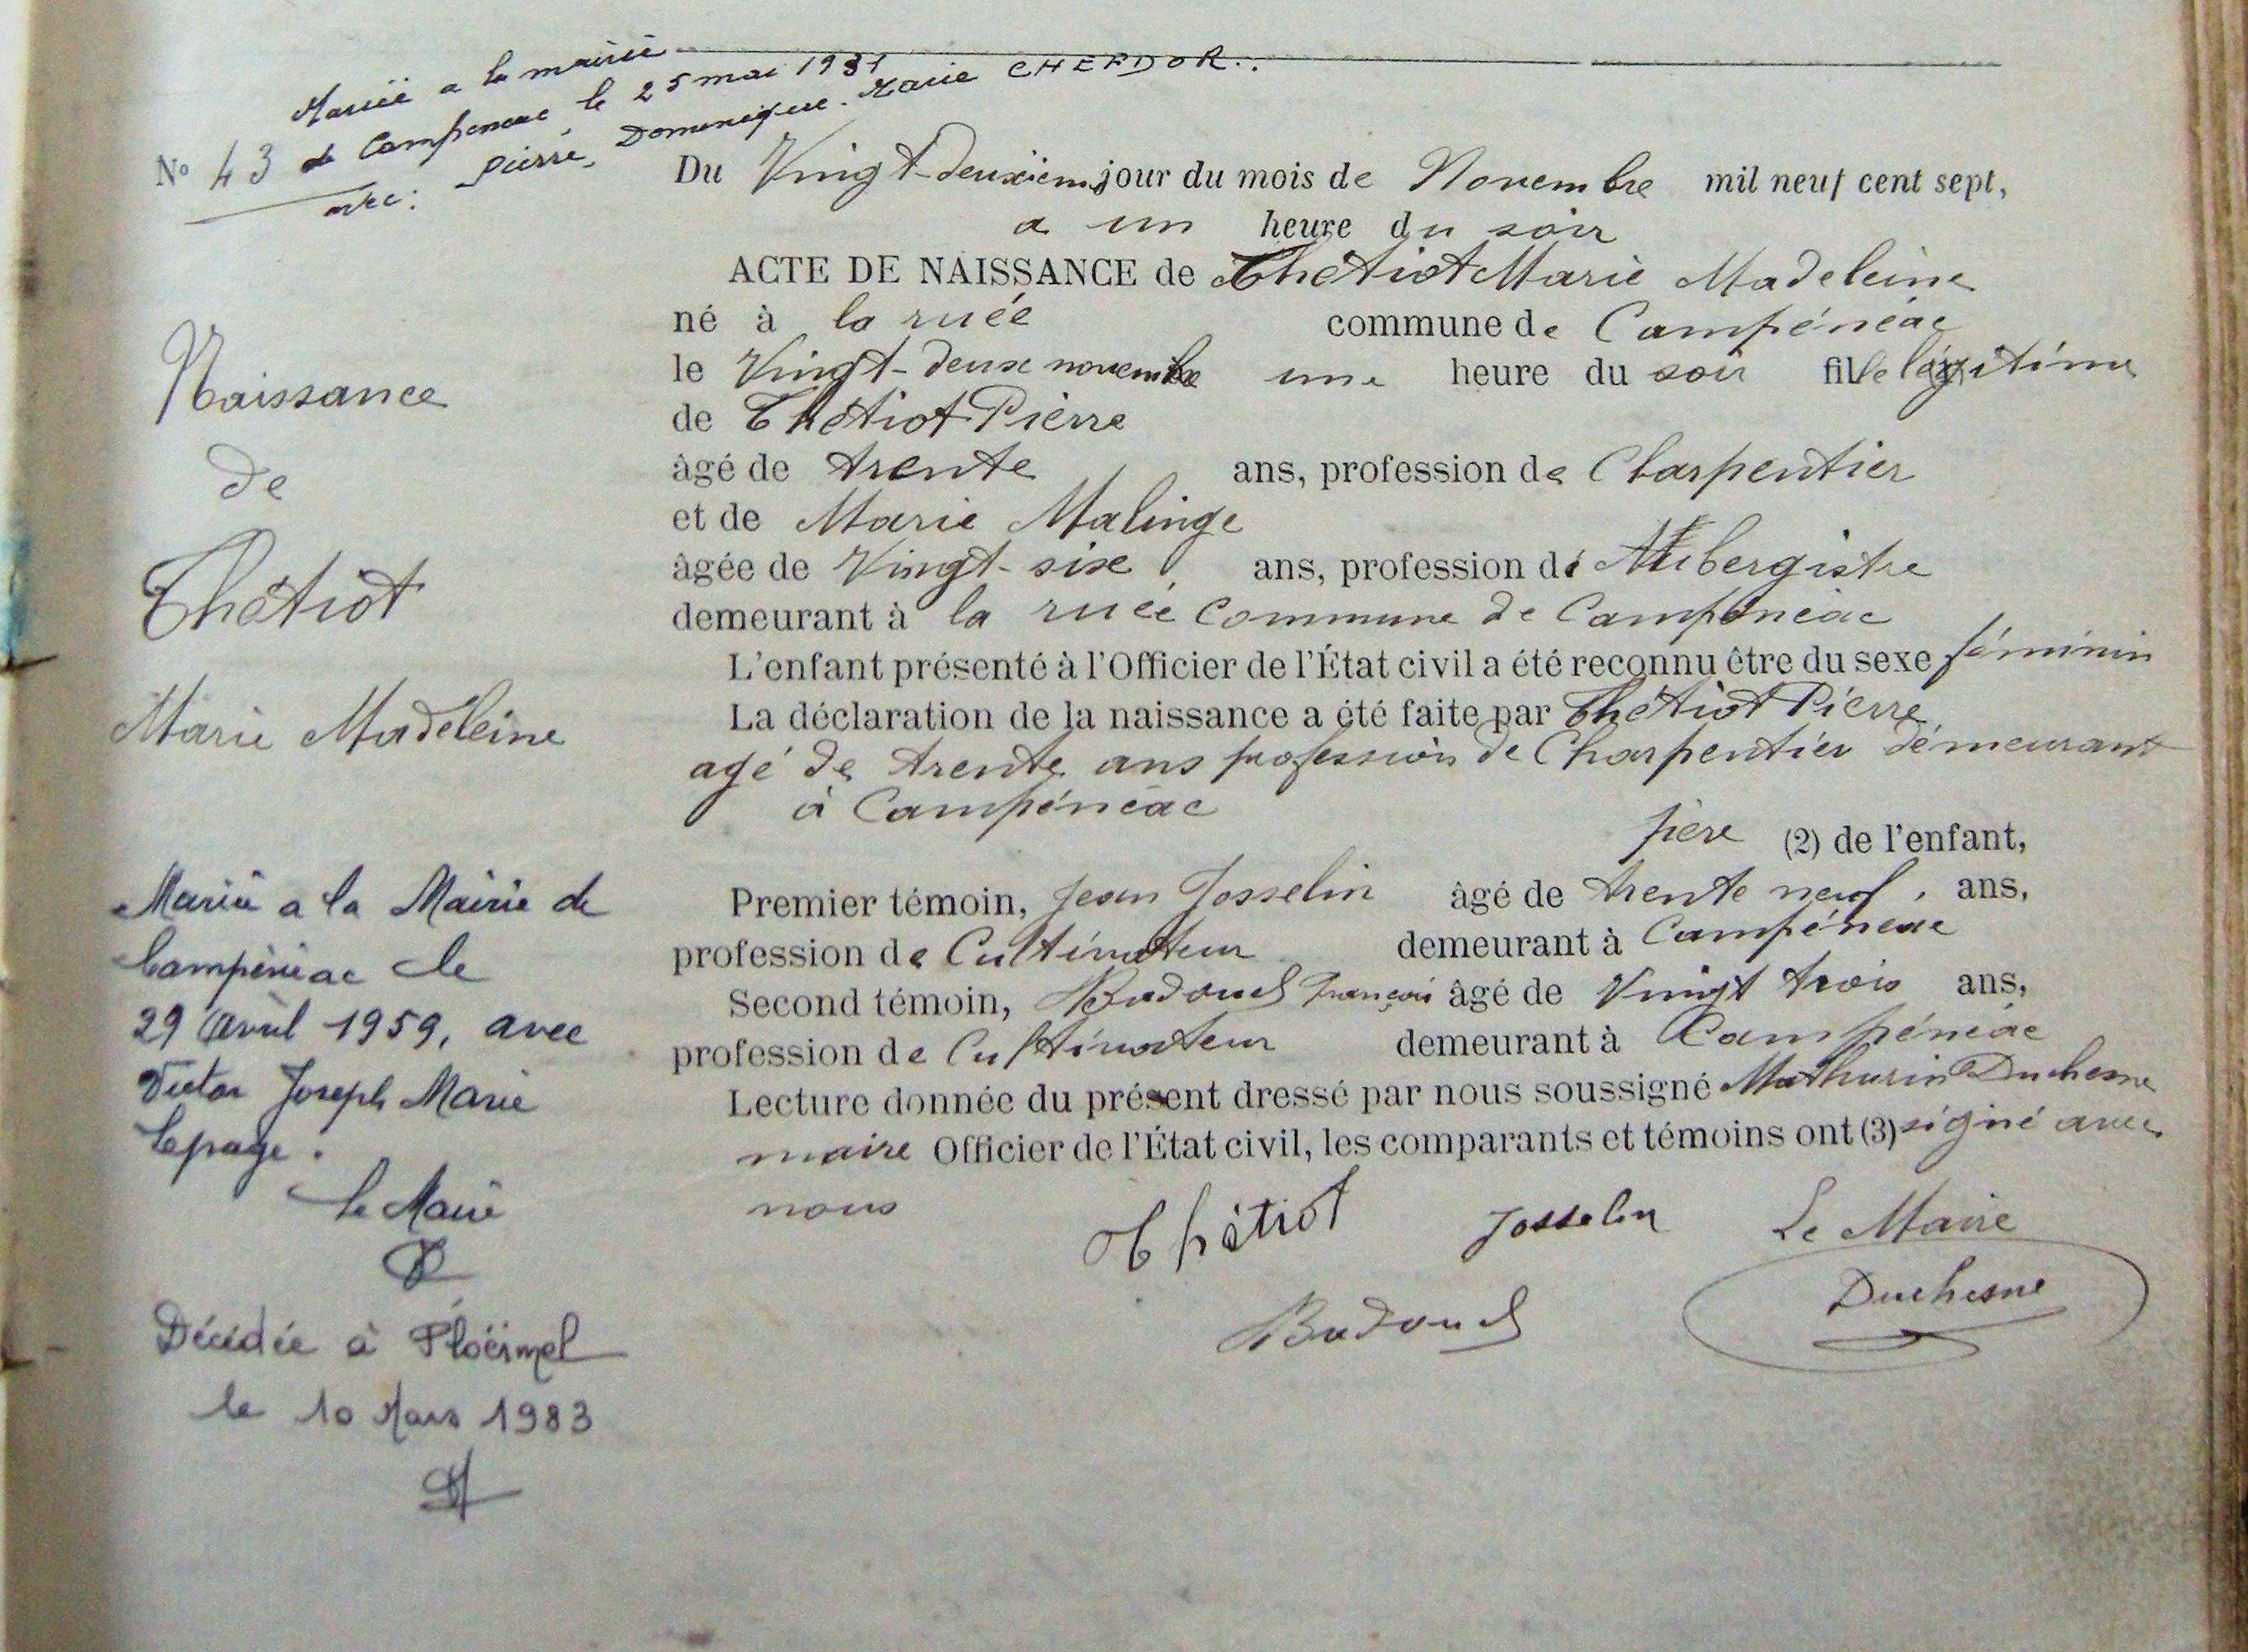 Mariée a la mairie
de Campeneac le 25 mai 1931
avec: Pierre, Dominique. Marie CHEFDOR..
N° 43
Naissance
de
Thétiot
Marie Madeleine
Mariée a la Mairie de
Campénéac le
29 Avril 1959, avec
Victor Joseph Marie
Lepage.
Le Maire
Décédée à Ploërmel
le 10 Mars 1983
Du Vingt-deuxièm jour du mois de Novembre mil neuf cent sept,
a un heure du soir
ACTE DE NAISSANCE de Thétiot Marie Madeleine
né à la ruée commune de Campénéac
le Vingt-deux novembre une heure du soir fille légitime
de Thétiot Pierre
âgé de trente ans, profession de Charpentier
et de Marie Malinge
âgée de Vingt-six ans, profession de Aubergiste
demeurant à la ruée commune de Campénéac
L'enfant présenté à l'Officier de l'État civil a été reconnu être du sexe féminin
La déclaration de la naissance a été faite par Thétiot Pierre
agé de trente ans profession de Charpentier demeurant
à Campénéac
père (2) de l'enfant,
Premier témoin, Jean Josselin âgé de trente neuf ans,
profession de Cultivateur demeurant à Campénéac
Second témoin, Badouel François âgé de Vingt trois ans,
profession de Cultivateur demeurant à Campénéac
Lecture donnée du présent dressé par nous soussigné Mathurin Duchesne
maire Officier de l'État civil, les comparants et témoins ont (3) signé avec
nous
Thétiot Josselin Le Maire
Badouel Duchesne